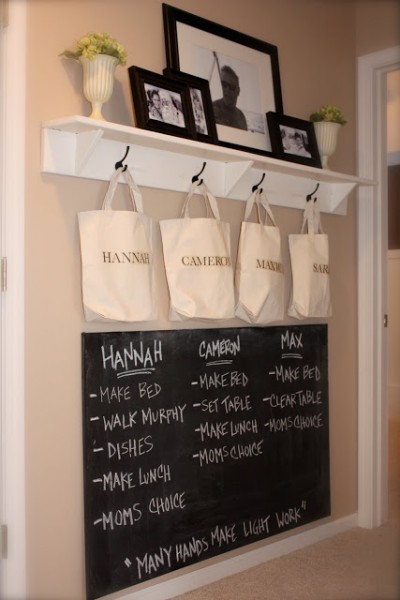 HANNAH
CAMERON
HANNAH
- MAKE BED
- WALK MURPHY
- DISHES
- MAKE LUNCH
- MOMS CHOICE
CAMERON
- MAKE BED
- SET TABLE
- MAKE LUNCH
- MOMS CHOICE
MAX
- MAKE BED
- CLEAR TABLE
- MOMS CHOICE
"MANY HANDS MAKE LIGHT WORK"